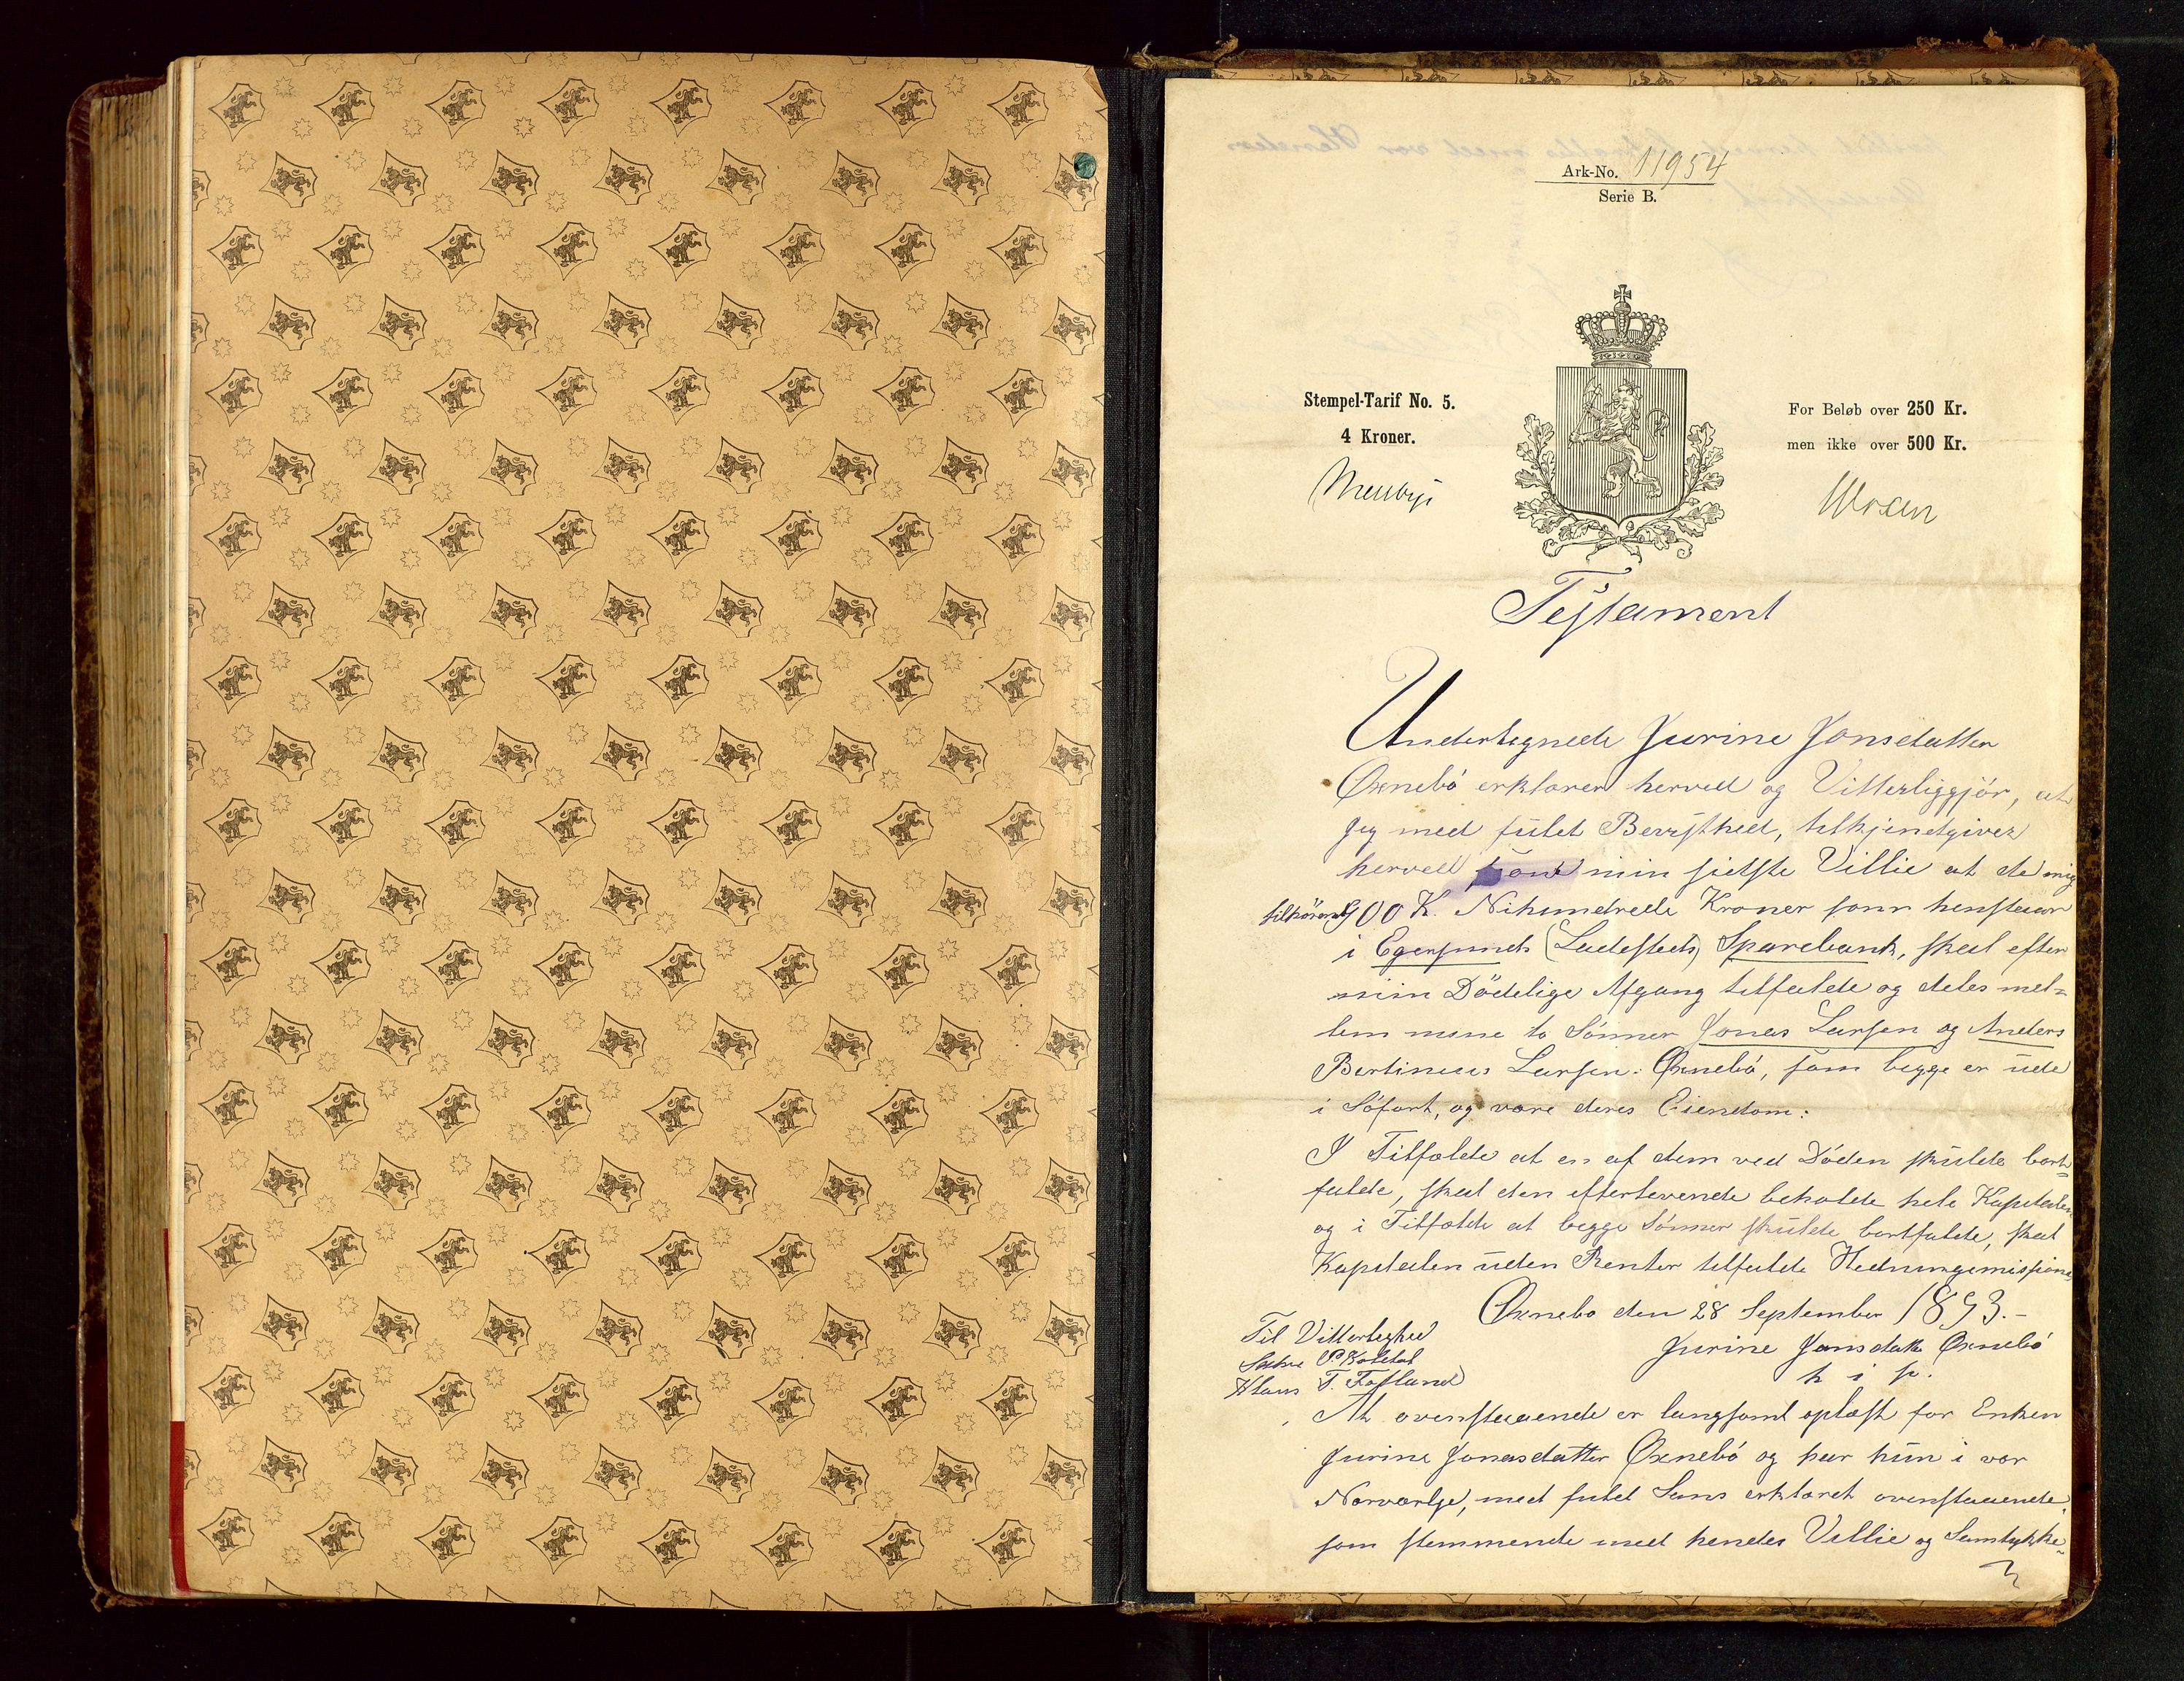 Ark-No. 11954
Serie B.
Stempel-Tarif No. 5.
4 Kroner.
For Beløb over 250 Kr.
men ikke over 500 Kr.
Testament
Undertegnede Jurine Jonsdatter
Øxnebö erklærer herved og Vitterliggjör, at
jeg med fuld Bevisthed, tilkjendgiver
herved som min sidste Villie at de mig
tilhörende 900 K. Nihundrede Kroner som henstaar
i Egersunds (Ladesteds) Sparebank, skal efter
min Dödelige Afgang tilfalde og deles mel=
lem mine to Sönner Jonas Larsen og Anders
Bertineus Larsen Øxnebö, som begge er ude
i Söfart, og være deres Eiendom:
I Tilfælde at en af dem ved Döden skulde bort=
falde, skal den efterlevende beholde hele Kapitalen
og i Tilfælde at begge Sönner skulde bortfalde, skal
Kapitalen uden Renter tilfalde Hedningemissionen
Øxnebö den 28 September 1893.-
Til Vitterlighed
Jurine Jonsdatt Øxnebö
h i p.
Klaus T. Fosland
At ovenstaaende er langsomt oplæst for Enken
Jurine Jonasdatter Øxnebö og har hun i vor
Nærværlse, med fuld Sans erklæret ovenstaaende
som stemmende med hendes Villie og Samtykke